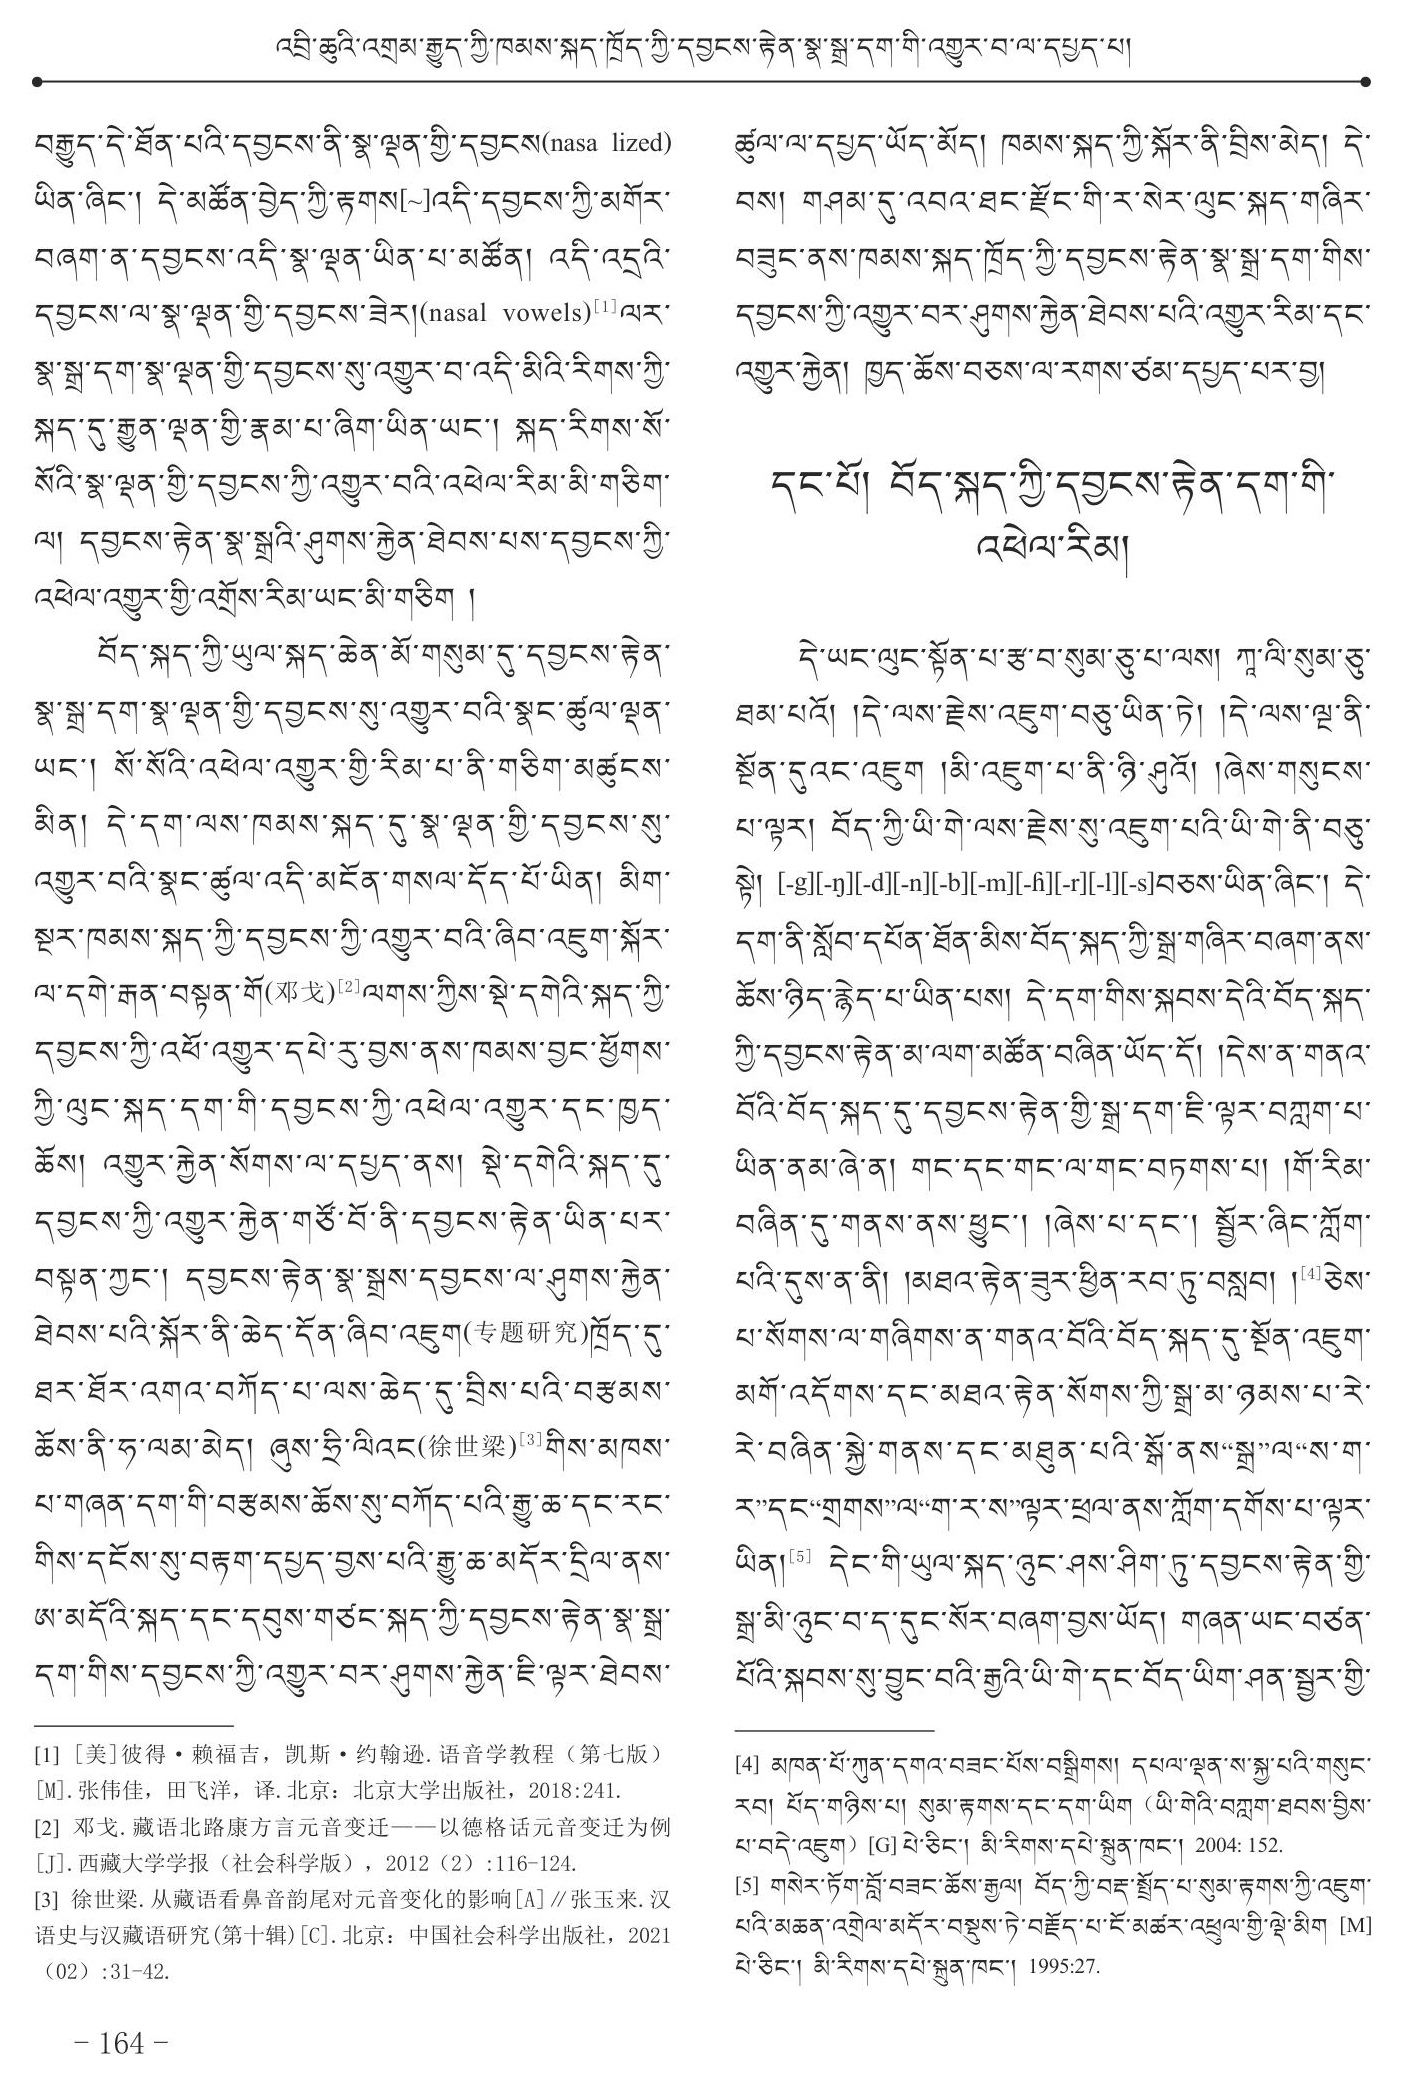 འབྲི་ཆུའི་འགྲམ་རྒྱུད་ཀྱི་ཁམས་སྐད་ཁྲོད་ཀྱི་དབྱངས་རྟེན་སྣ་སྒྲ་དག་གི་འགྱུར་བ་ལ་དཔྱད་པ།
བརྒྱུད་དེ་ཐོན་པའི་དབྱངས་ནི་སྣ་ལྡན་གྱི་དབྱངས(nasa lized)
ཡིན་ཞིང་། དེ་མཚོན་བྱེད་ཀྱི་རྟགས[~]འདི་དབྱངས་ཀྱི་མགོར་
བཞག་ན་དབྱངས་འདི་སྣ་ལྡན་ཡིན་པ་མཚོན། འདི་འདྲའི་
དབྱངས་ལ་སྣ་ལྡན་གྱི་དབྱངས་ཟེར།(nasal vowels)[1]ལར་
སྣ་སྒྲ་དག་སྣ་ལྡན་གྱི་དབྱངས་སུ་འགྱུར་བ་འདི་མིའི་རིགས་ཀྱི་
སྐད་དུ་རྒྱུན་ལྡན་གྱི་རྣམ་པ་ཞིག་ཡིན་ཡང་། སྐད་རིགས་སོ་
སོའི་སྣ་ལྡན་གྱི་དབྱངས་ཀྱི་འགྱུར་བའི་འཕེལ་རིམ་མི་གཅིག་
ལ། དབྱངས་རྟེན་སྣ་སྒྲའི་ཤུགས་རྐྱེན་ཐེབས་པས་དབྱངས་ཀྱི་
འཕེལ་འགྱུར་གྱི་འགྲོས་རིམ་ཡང་མི་གཅིག །
བོད་སྐད་ཀྱི་ཡུལ་སྐད་ཆེན་མོ་གསུམ་དུ་དབྱངས་རྟེན་
སྣ་སྒྲ་དག་སྣ་ལྡན་གྱི་དབྱངས་སུ་འགྱུར་བའི་སྣང་ཚུལ་ལྡན་
ཡང་། སོ་སོའི་འཕེལ་འགྱུར་གྱི་རིམ་པ་ནི་གཅིག་མཚུངས་
མིན། དེ་དག་ལས་ཁམས་སྐད་དུ་སྣ་ལྡན་གྱི་དབྱངས་སུ་
འགྱུར་བའི་སྣང་ཚུལ་འདི་མངོན་གསལ་དོད་པོ་ཡིན། མིག་
སྔར་ཁམས་སྐད་ཀྱི་དབྱངས་ཀྱི་འགྱུར་བའི་ཞིབ་འཇུག་སྐོར་
ལ་དགེ་རྒན་བསྟན་གོ(邓戈)[2]ལགས་ཀྱིས་སྡེ་དགེའི་སྐད་ཀྱི་
དབྱངས་ཀྱི་འཕོ་འགྱུར་དཔེ་རུ་བྱས་ནས་ཁམས་བྱང་ཕྱོགས་
ཀྱི་ལུང་སྐད་དག་གི་དབྱངས་ཀྱི་འཕེལ་འགྱུར་དང་ཁྱད་
ཆོས། འགྱུར་རྐྱེན་སོགས་ལ་དཔྱད་ནས། སྡེ་དགེའི་སྐད་དུ་
དབྱངས་ཀྱི་འགྱུར་རྐྱེན་གཙོ་བོ་ནི་དབྱངས་རྟེན་ཡིན་པར་
བསྟན་ཀྱང་། དབྱངས་རྟེན་སྣ་སྒྲས་དབྱངས་ལ་ཤུགས་རྐྱེན་
ཐེབས་པའི་སྐོར་ནི་ཆེད་དོན་ཞིབ་འཇུག(专题研究)ཁྲོད་དུ་
ཐར་ཐོར་འགའ་བཀོད་པ་ལས་ཆེད་དུ་བྲིས་པའི་བརྩམས་
ཆོས་ནི་ཧ་ལམ་མེད། ཞུས་ཧྲི་ལིའང(徐世梁)[3]གིས་མཁས་
པ་གཞན་དག་གི་བརྩམས་ཆོས་སུ་བཀོད་པའི་རྒྱུ་ཆ་དང་རང་
གིས་དངོས་སུ་བརྟག་དཔྱད་བྱས་པའི་རྒྱུ་ཆ་མདོར་དྲིལ་ནས་
ཨ་མདོའི་སྐད་དང་དབུས་གཙང་སྐད་ཀྱི་དབྱངས་རྟེན་སྣ་སྒྲ་
དག་གིས་དབྱངས་ཀྱི་འགྱུར་བར་ཤུགས་རྐྱེན་ཇི་ལྟར་ཐེབས་
[1] [美]彼得·赖福吉，凯斯·约翰逊.语音学教程（第七版）
[M].张伟佳，田飞洋，译.北京：北京大学出版社，2018:241.
[2] 邓戈.藏语北路康方言元音变迁——以德格话元音变迁为例
[J].西藏大学学报（社会科学版）,2012（2）:116-124.
[3] 徐世梁.从藏语看鼻音韵尾对元音变化的影响[A]∥张玉来.汉
语史与汉藏语研究(第十辑)[C].北京：中国社会科学出版社，2021
（02）:31-42.
- 164 -
ཚུལ་ལ་དཔྱད་ཡོད་མོད། ཁམས་སྐད་ཀྱི་སྐོར་ནི་བྲིས་མེད། དེ་
བས། གཤམ་དུ་འབའ་ཐང་རྫོང་གི་ར་སེར་ལུང་སྐད་གཞིར་
བཟུང་ནས་ཁམས་སྐད་ཁྲོད་ཀྱི་དབྱངས་རྟེན་སྣ་སྒྲ་དག་གིས་
དབྱངས་ཀྱི་འགྱུར་བར་ཤུགས་རྐྱེན་ཐེབས་པའི་འགྱུར་རིམ་དང་
འགྱུར་རྐྱེན། ཁྱད་ཆོས་བཅས་ལ་རགས་ཙམ་དཔྱད་པར་བྱ།
དང་པོ། བོད་སྐད་ཀྱི་དབྱངས་རྟེན་དག་གི་
འཕེལ་རིམ།
དེ་ཡང་ལུང་སྟོན་པ་རྩ་བ་སུམ་ཅུ་པ་ལས། ཀཱ་ལི་སུམ་ཅུ་
ཐམ་པའོ། །དེ་ལས་རྗེས་འཇུག་བཅུ་ཡིན་ཏེ། །དེ་ལས་ལྔ་ནི་
སྔོན་དུའང་འཇུག །མི་འཇུག་པ་ནི་ཉི་ཤུའོ། །ཞེས་གསུངས་
པ་ལྟར། བོད་ཀྱི་ཡི་གེ་ལས་རྗེས་སུ་འཇུག་པའི་ཡི་གེ་ནི་བཅུ་
སྟེ། [-g][-ŋ][-d][-n][-b][-m][-ɦ][-r][-l][-s]བཅས་ཡིན་ཞིང་། དེ་
དག་ནི་སློབ་དཔོན་ཐོན་མིས་བོད་སྐད་ཀྱི་སྒྲ་གཞིར་བཞག་ནས་
ཆོས་ཉིད་རྙེད་པ་ཡིན་པས། དེ་དག་གིས་སྐབས་དེའི་བོད་སྐད་
ཀྱི་དབྱངས་རྟེན་མ་ལག་མཚོན་བཞིན་ཡོད་དོ། །དེས་ན་གནའ་
བོའི་བོད་སྐད་དུ་དབྱངས་རྟེན་གྱི་སྒྲ་དག་ཇི་ལྟར་བཀླག་པ་
ཡིན་ནམ་ཞེ་ན། གང་དང་གང་ལ་གང་བཏགས་པ། །གོ་རིམ་
བཞིན་དུ་གནས་ནས་ཕྱུང་། །ཞེས་པ་དང་། སྦྱོར་ཞིང་ཀློག་
པའི་དུས་ན་ནི། །མཐའ་རྟེན་ཟུར་ཕྱིན་རབ་ཏུ་བསླབ། །[4]ཅེས་
པ་སོགས་ལ་གཞིགས་ན་གནའ་བོའི་བོད་སྐད་དུ་སྔོན་འཇུག་
མགོ་འདོགས་དང་མཐའ་རྟེན་སོགས་ཀྱི་སྒྲ་མ་ཉམས་པ་རེ་
རེ་བཞིན་སྐྱེ་གནས་དང་མཐུན་པའི་སྒོ་ནས“སྒྲ”ལ“ས་ག་
ར”དང“གྲགས”ལ“ག་ར་ས”ལྟར་ཕྲལ་ནས་ཀློག་དགོས་པ་ལྟར་
ཡིན།[5] དེང་གི་ཡུལ་སྐད་ཉུང་ཤས་ཤིག་ཏུ་དབྱངས་རྟེན་གྱི་
སྒྲ་མི་ཉུང་བ་ད་དུང་སོར་བཞག་བྱས་ཡོད། གཞན་ཡང་བཙན་
པོའི་སྐབས་སུ་བྱུང་བའི་རྒྱའི་ཡི་གེ་དང་བོད་ཡིག་ཤན་སྦྱར་གྱི་
[4] མཁན་པོ་ཀུན་དགའ་བཟང་པོས་བསྒྲིགས། དཔལ་ལྡན་ས་སྐྱ་པའི་གསུང་
རབ། པོད་གཉིས་པ། སུམ་རྟགས་དང་དག་ཡིག（ཡི་གེའི་བཀླག་ཐབས་བྱིས་
པ་བདེ་འཇུག）[G] པེ་ཅིང་། མི་རིགས་དཔེ་སྐྲུན་ཁང་། 2004: 152.
[5] གསེར་ཏོག་བློ་བཟང་ཆོས་རྒྱལ། བོད་ཀྱི་བརྡ་སྤྲོད་པ་སུམ་རྟགས་ཀྱི་འཇུག་
པའི་མཆན་འགྲེལ་མདོར་བསྡུས་ཏེ་བརྗོད་པ་ངོ་མཚར་འཕྲུལ་གྱི་ལྡེ་མིག [M]
པེ་ཅིང་། མི་རིགས་དཔེ་སྐྲུན་ཁང་། 1995:27.